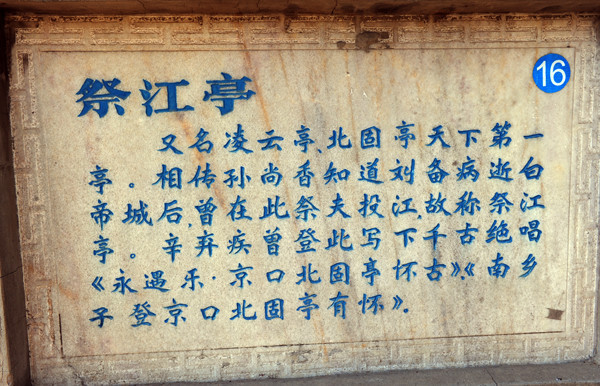 祭江亭
16
又名凌云亭、北固亭天下第一
亭。相传孙尚香知道刘备病逝白
帝城后,曾在此祭夫投江,故称祭江
亭。辛弃疾曾登此写下千古绝唱
《永遇乐·京口北固亭怀古》、《南乡
子登京口北固亭有怀》。